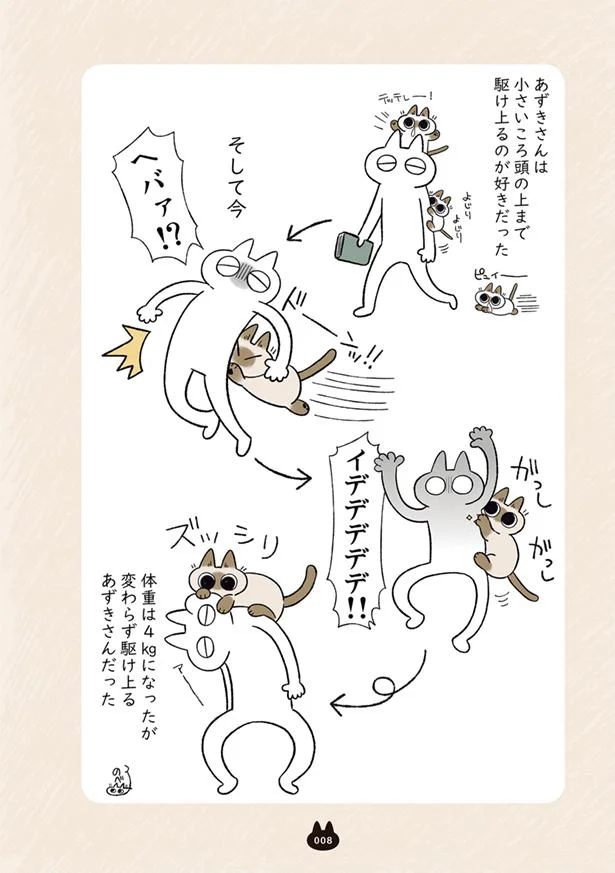 あずきさんは
小さいころ頭の上まで
駆け上るのが好きだった
テッテレー！
よじり
よじり
ピュイー
そして今
ヘバァ!?
ドーーンッ!!
イデデデデデデ!!
がっし
がっし
ズッシリ
アー
体重は４kgになったが
変わらず駆け上る
あずきさんだった
008